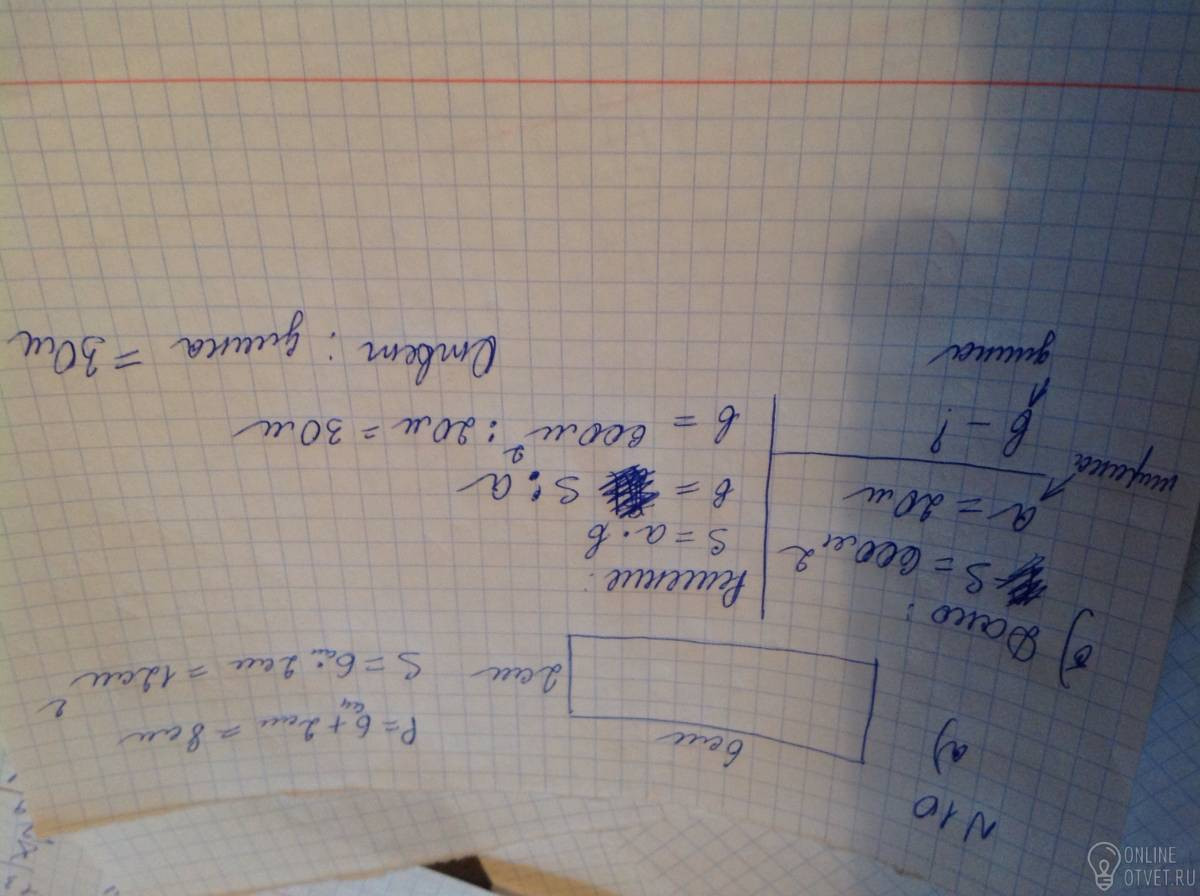 N 10
а)
6 см
2 см
P = 6 см + 2 см = 8 см
S = 6 см · 2 см = 12 см²
б)
Дано:
S = 600 м²
a = 20 м
ширина
b - ?
длина
Решение:
S = a · b
b = S : a
b = 600 м² : 20 м = 30 м
Ответ: длина = 30 м
ONLINE
OTVET.RU